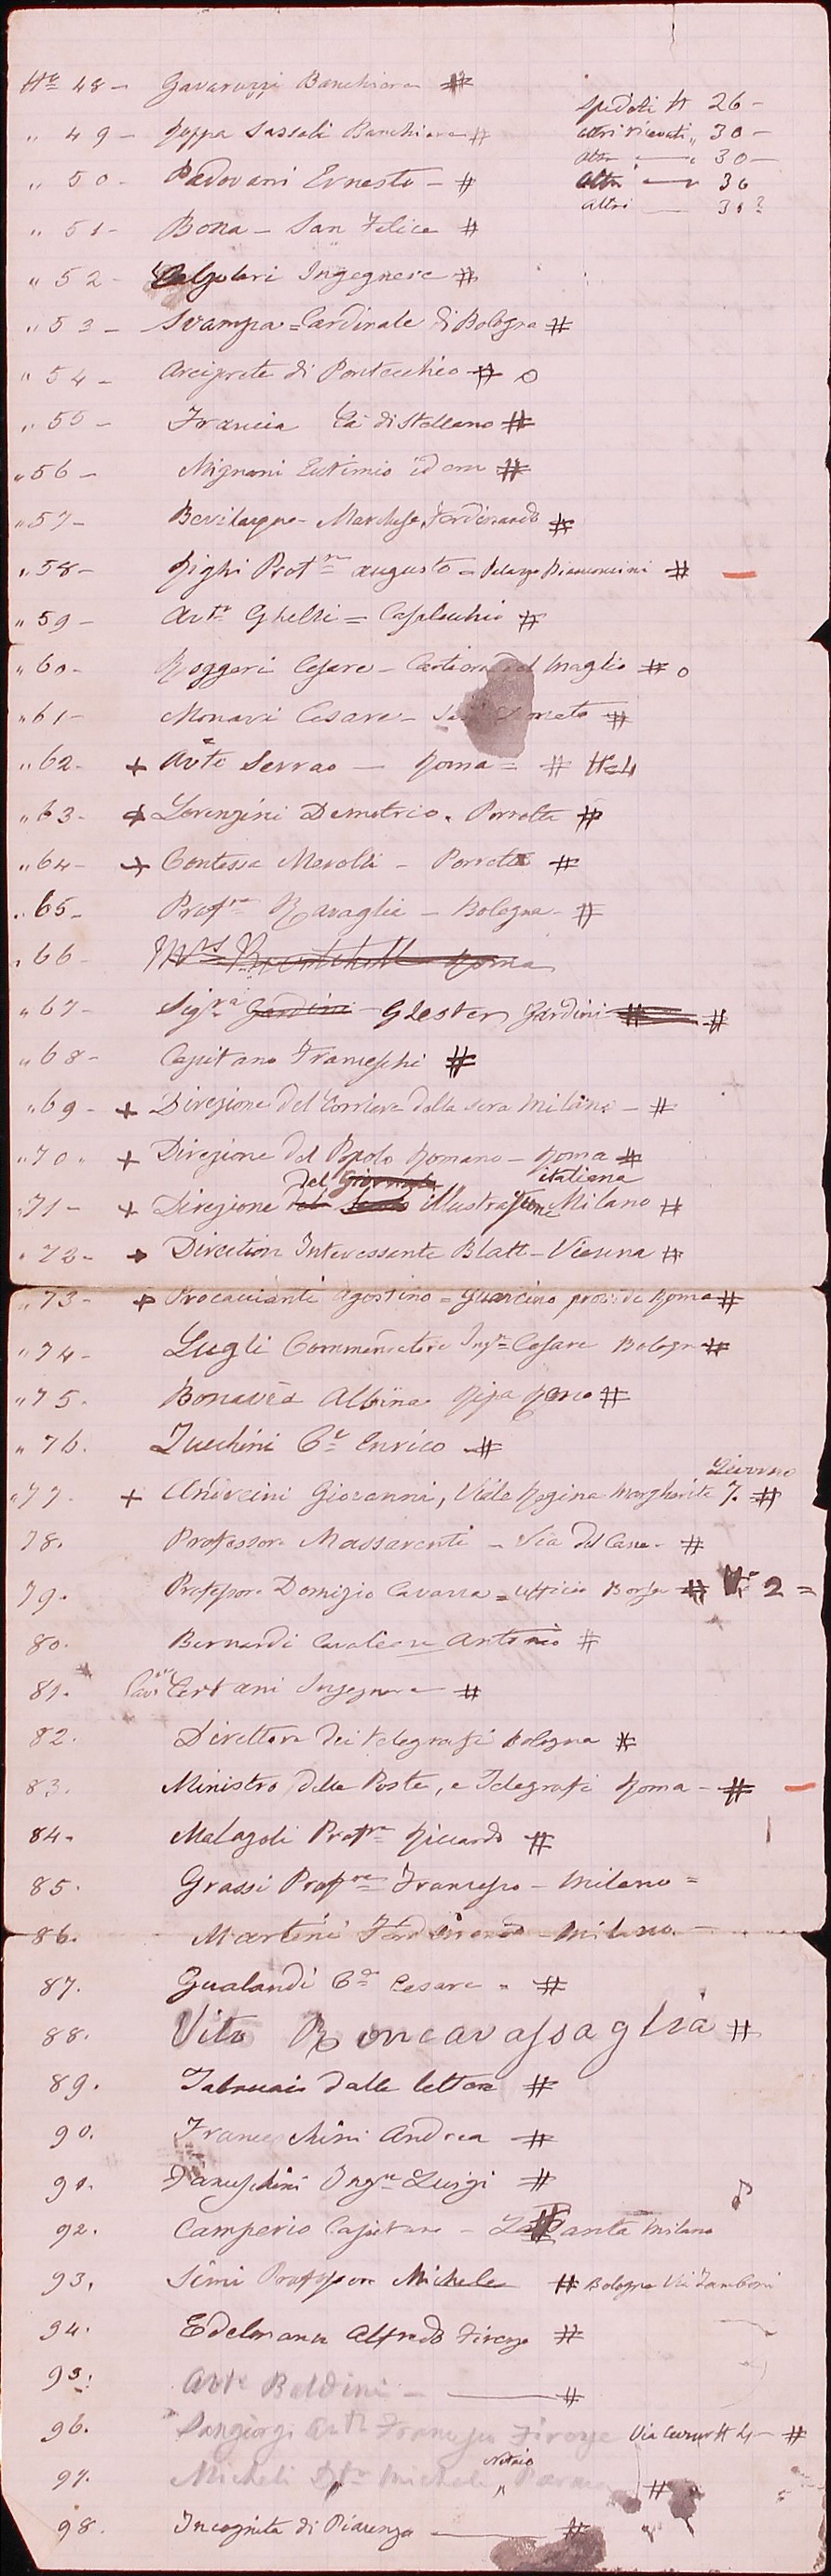 No 48 – Gavaruzzi Banchiere #
" 49 – Poppa Sassoli Banchiere #
" 50 – Padovani Ernesto – #
" 51 – Bona – San Felice #
" 52 – Calzolari Ingegnere #
" 53 – Svampa = Cardinale di Bologna #
" 54 – Arciprete di Pontecchio # o
" 55 – Francia Cà di Stellano #
" 56 – Mignani Eutimio idem #
" 57 – Bevilacqua – Marchese Ferdinando #
" 58 – Righi Profre augusto = Palazzo Bianconcini #
" 59 – Avto Ghelli = Casalecchio #
" 60 – Roggeri Cesare – Cartiera del Maglio # o
" 61 – Monari Cesare – #
" 62 – + Avto Serrao – Roma = # N=4
" 63 – + Lorenzini Demetrio. Porretta #
" 64 – + Contessa Marolli – Porretta #
" 65 – Profre Ravaglia – Bologna – #
" 66 – Mrs Roma
" 67 – Sigra Gardini – Glester Gardini #
" 68 – Capitano Franceschi #
" 69 – + Direzione del Corriere della sera Milano – #
" 70 " + Direzione del Popolo Romano – Roma #
del Giornale italiana
" 71 – + Direzione del illustrazione Milano #
" 72 – + Direction Interessante Blatt – Vienna #
" 73 – + Procaccianti Agostino = Guarcino prov: di Roma #
" 74 – Lugli Commendatore Ingre Cesare Bologna #
" 75. Bonavia Albina Ripa Reno #
" 76. Zucchini Ce Enrico #
Livorno
" 77. + Andreini Giovanni, Viale Regina Margherita 7. #
78. Professore Massarenti – Via del Cane – #
79. Professore Domizio Cavazza = Ufficio Borse # No 2 =
80. Bernardi Cavaliere Antonio #
81. Cavre Certani Ingegnere #
82. Direttore dei telegrafi Bologna #
83. Ministro delle Poste, e Telegrafi Roma – #
84. Malagoli Profre Riccardo #
85. Grassi Profre Francesco – Milano =
86. Martini Ferdinando – Milano –
87. Gualandi Ce Cesare " #
88. Vito Roncavassaglia #
89. dalle lettere #
90. Franceschini Andrea #
91. Franceschini Ingre Luigi #
92. Camperio Capitano – La Santa Milano
93. Simi Professore Michele # Bologna Via Zamboni
94. Edelmann Alfredo Firenze #
95. Avto Baldini – #
96. Sangiorgi Avto Francesco Firenze Via Cavour N 4 – #
Notaio
97. Micheli Dtr Michele " Parma #
98. Incognita di Piacenza #
spediti N 26 –
altri ricevuti " 30 –
altri " 30 –
altri 30
altri 30?